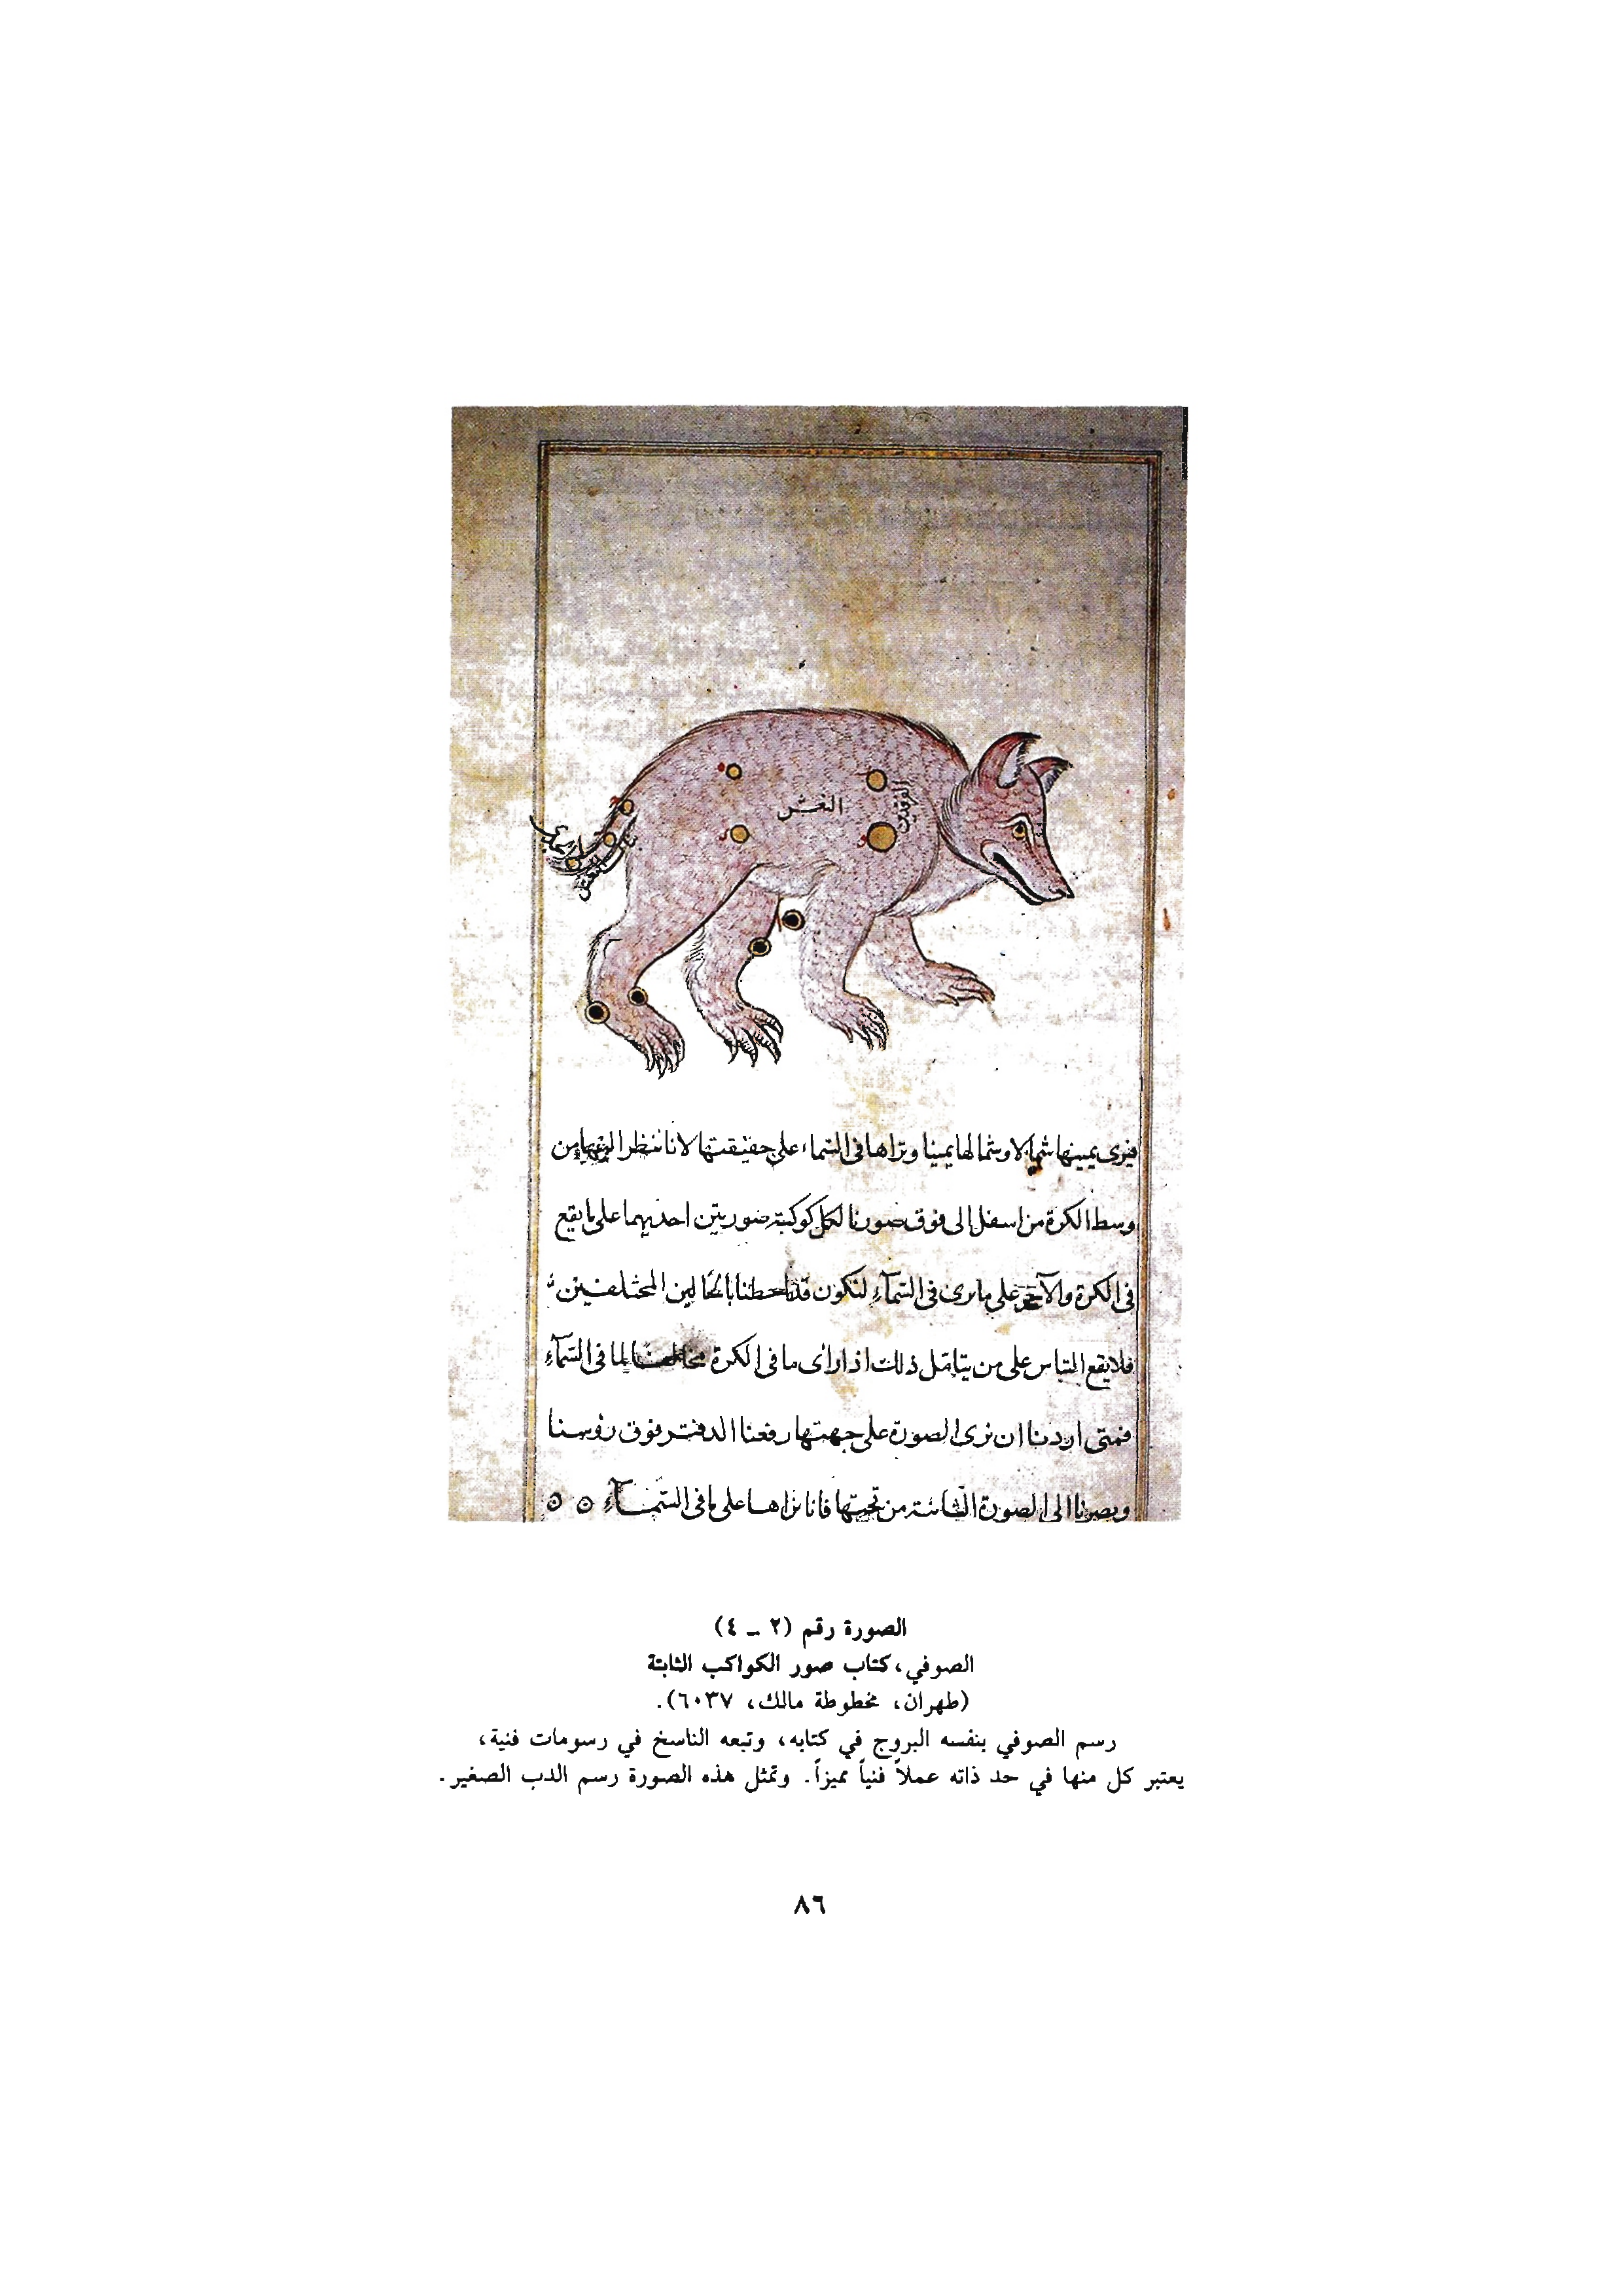 النعش
الفرقدين
فيرى يمينها شمالا وشمالها يمينا ونراها في السماء على حقيقتها لانا ننظر اليها من
وسط الكرة من اسفل الى فوق صورنا لكل كوكبة صورتين احديهما على ما يقع
في الكرة والآخر على ما يرى في السمآء لنكون قد احطنا بالحالين المختلفين
فلا يقع التباس على من يتامل ذلك اذا راى ما في الكرة مخالفا لما في السمآء
فمتى اردنا ان نرى الصورة على جهتها رفعنا الدفتر فوق رؤسنا
وبصرنا الى الصورة الثانية من تحتها فانا نراها على ما في السمآء
الصورة رقم (٢ - ٤)
الصوفي، كتاب صور الكواكب الثابتة
(طهران، مخطوطة مالك، ٦٠٣٧).
رسم الصوفي بنفسه البروج في كتابه، وتبعه الناسخ في رسومات فنية،
يعتبر كل منها في حد ذاته عملاً فنياً مميزاً. وتمثل هذه الصورة رسم الدب الصغير.
٨٦